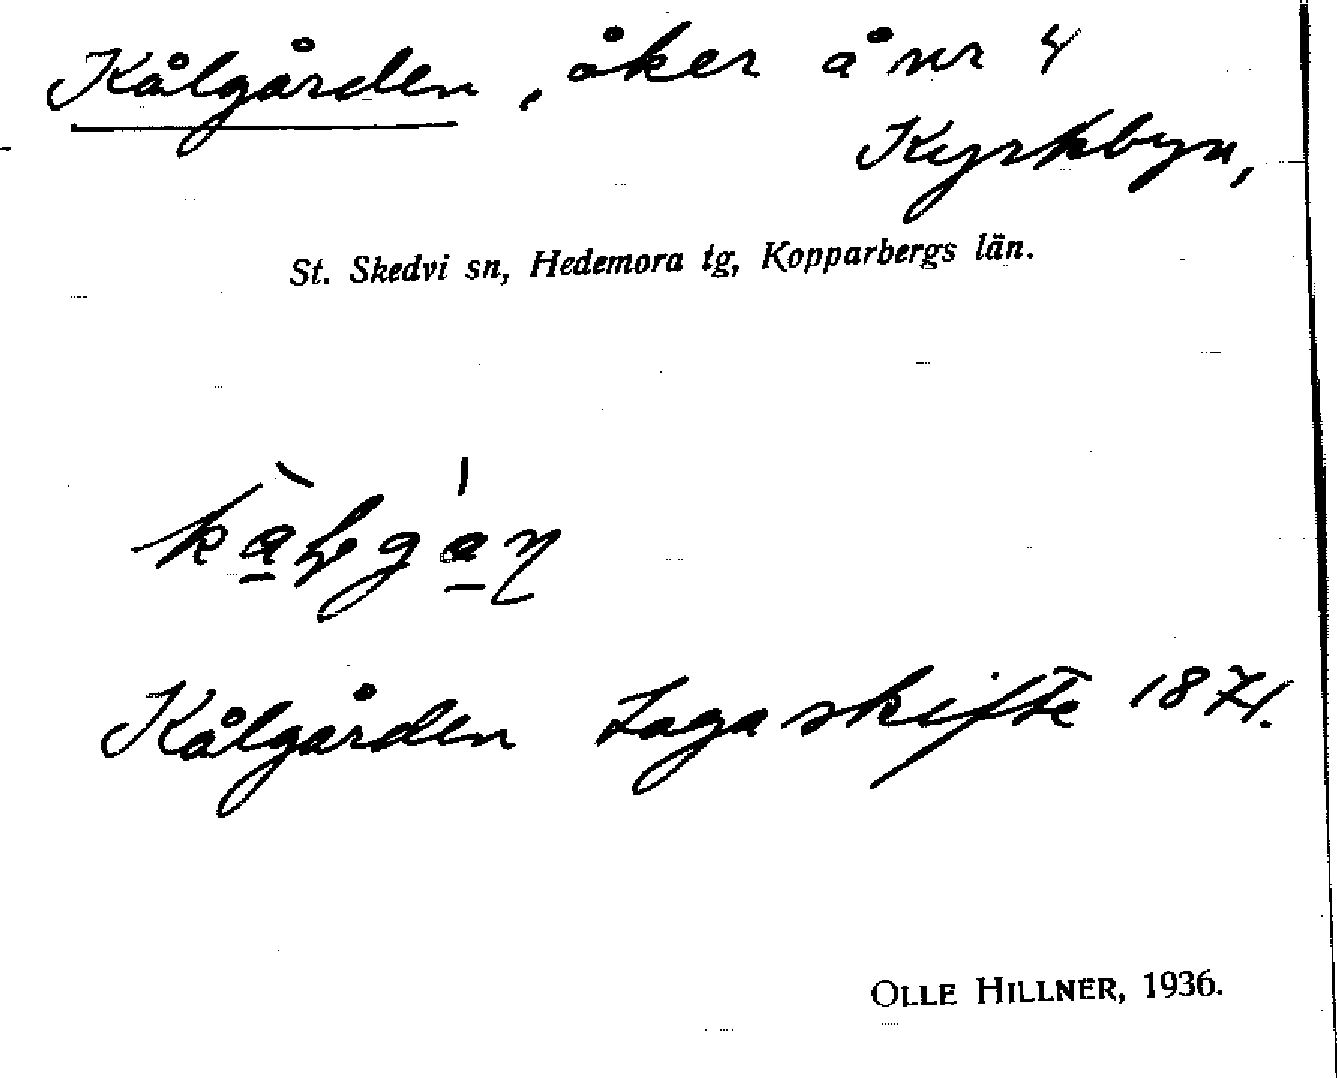 Kålgården, åker å nr 4
Kyrkbyn,
St. Skedvi sn, Hedemora tg, Kopparbergs län.
Kålgården Laga skifte 1871.
OLLE HILLNER, 1936.